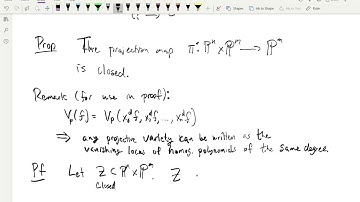 Prop The projection map π: ℙⁿ×ℙᵐ → ℙᵐ
is closed.
Remark (for use in proof):
V_p(f) = V_p(x₀ᵈf, x₁ᵈf, ..., xₙᵈf)
⇒ any projective variety can be written as the
vanishing locus of homog. polynomials of the same degree.
Pf Let Z ⊂ ℙⁿ×ℙᵐ. Z
closed